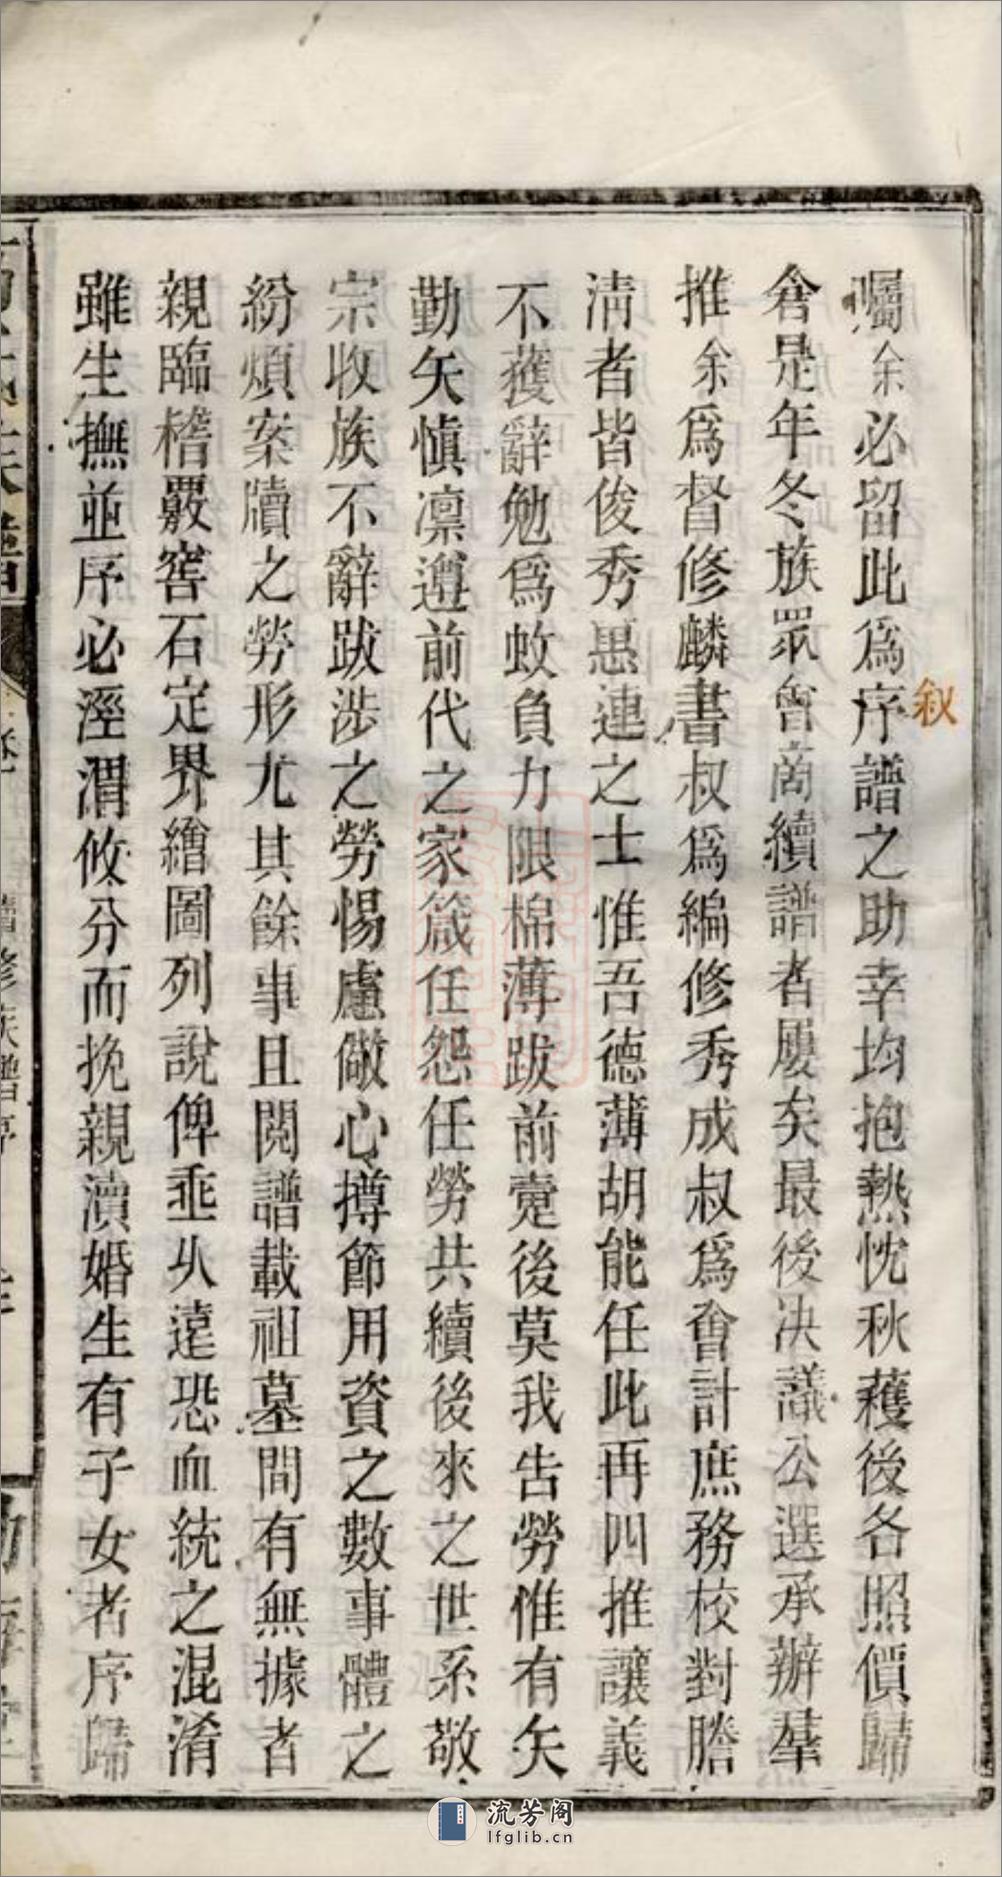 囑余必留此爲序譜之助幸均抱熱忱秋穫後各照價歸
倉是年冬族眾會商續譜者屢矣最後决議公選承辦羣
推余爲督修麟書叔爲編修秀成叔爲會計庶務校對謄
清者皆俊秀愚連之士惟吾德薄胡能任此再四推讓義
不獲辭勉爲蚊負力限棉薄跋前疐後莫我告勞惟有矢
勤矢慎凛遵前代之家箴任怨任勞共續後來之世系敬
宗收族不辭跋涉之勞惕慮儆心撙節用資之數事體之
紛煩案牘之勞形尤其餘事且閱譜載祖墓間有無據者
親臨稽覈窖石定界繪圖列說俾垂久遠恐血統之混淆
雖生撫並序必涇渭攸分而挽親瀆婚生有子女者序歸
敘
續修族譜序
流芳阁
lfglib.cn